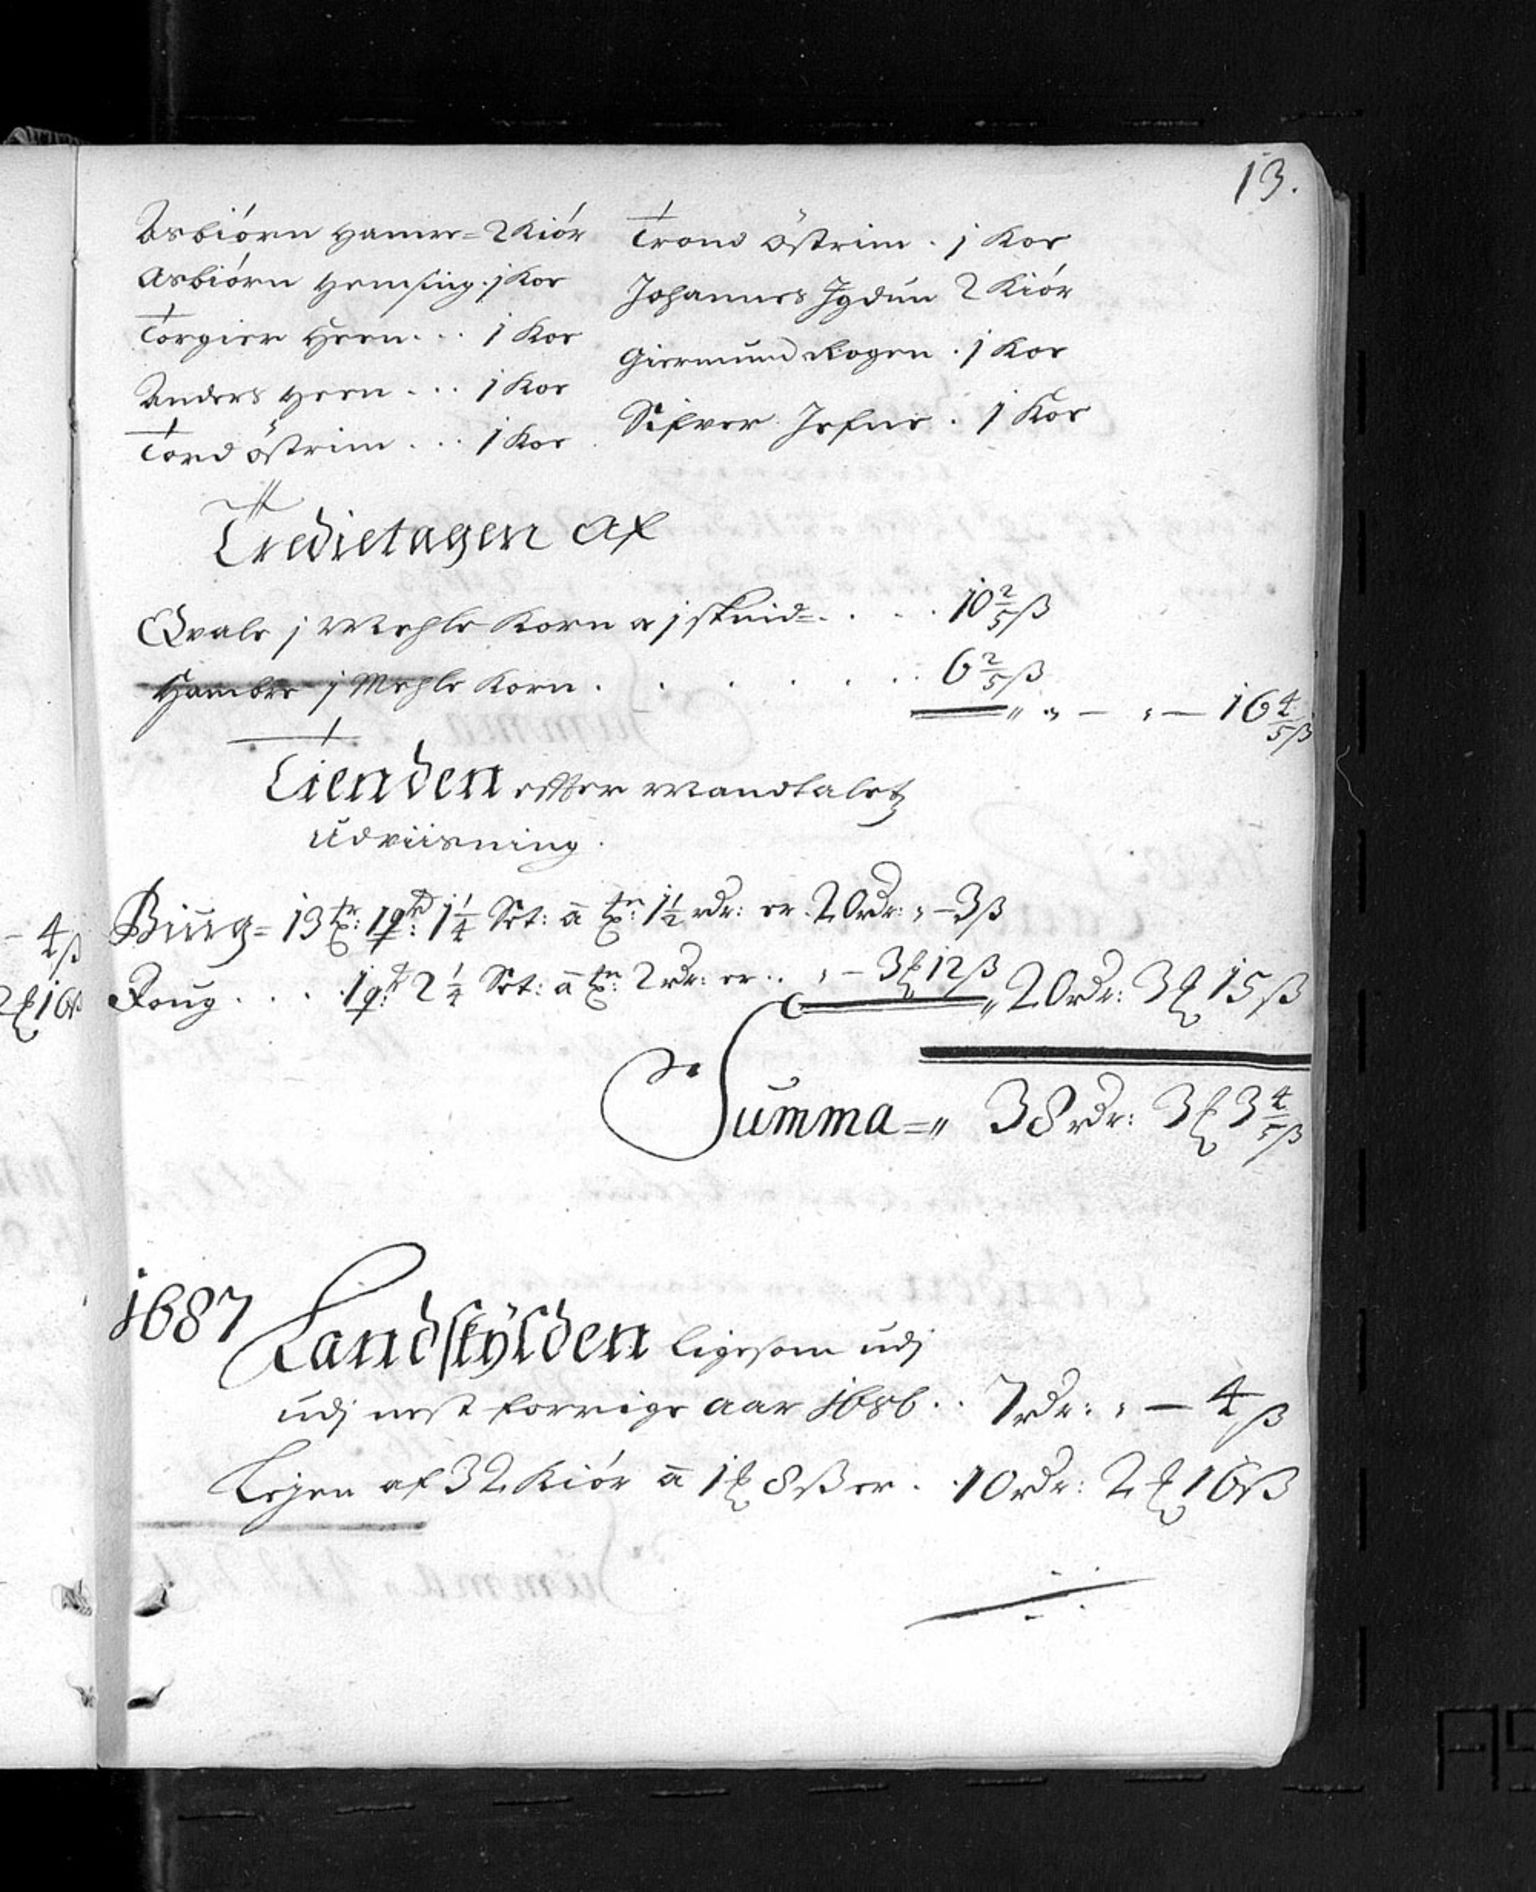 13.
Asbiørn Hamre = 2 Kiör
Asbiörn Hemsing . j Koe
Torgier Heen . . . j Koe
Anders Heen . . . j Koe
Tord Östrim . . . j Koe
Trond Östrim . j Koe
Johannes Jgdun 2 Kiör
Giermund Rogen . j Koe
Sifver Jefne . j Koe
Tredietagen af
Qvale j Mehle Korn a j skind = . . . 10 2/5 ß
Hambre j Mehle Korn . . . . . . 6 2/5 ß
" " — " — 16 4/5 ß
Tienden effter Mandtalets
udviisning .
Biug = 13 tr: 1 qrt: 1 1/4 Set: a tn: 1 1/2 rdr: er . 20 rdr: " — 3 ß
Roug . . . . 1 qrt: 2 1/4 Set: a tn: 2 rdr: er . . " — 3 ℔ 12 ß
" 20 rdr: 3 ℔ 15 ß
Summa = " 38 rdr: 3 ℔ 3 4/5 ß
1687 Landskÿlden ligesom udj
udj nest forrige aar 1686 . . 7 rdr: " — 4 ß
Lejen af 32 Kiör a 1 ℔ 8 ß er . 10 rdr: 2 ℔ 16 ß
— 4 ß
2 ℔ 16 ß